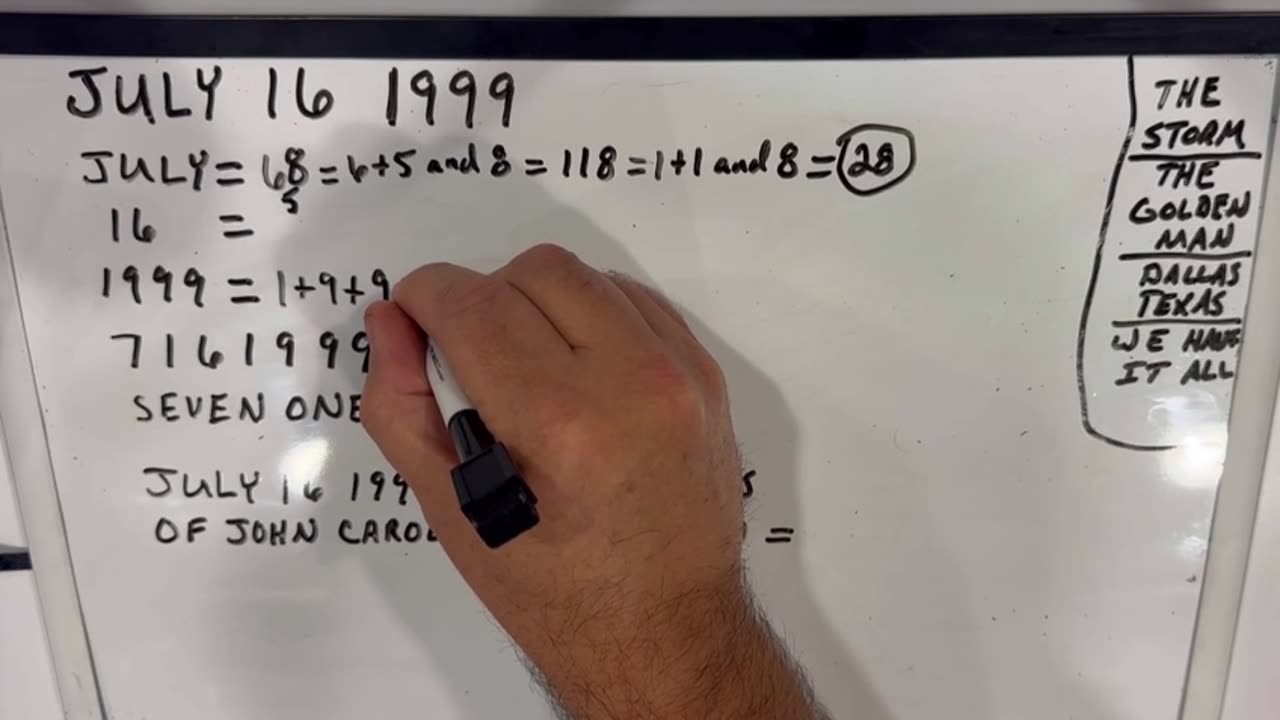 JULY 16 1999
JULY = 68 = 6+5 and 8 = 118 = 1+1 and 8 = 28
5
16 =
1999 = 1+9+9
7161999
SEVEN ONE
JULY 16 199
OF JOHN CAROL =
THE
STORM
THE
GOLDEN
MAN
DALLAS
TEXAS
WE HAVE
IT ALL